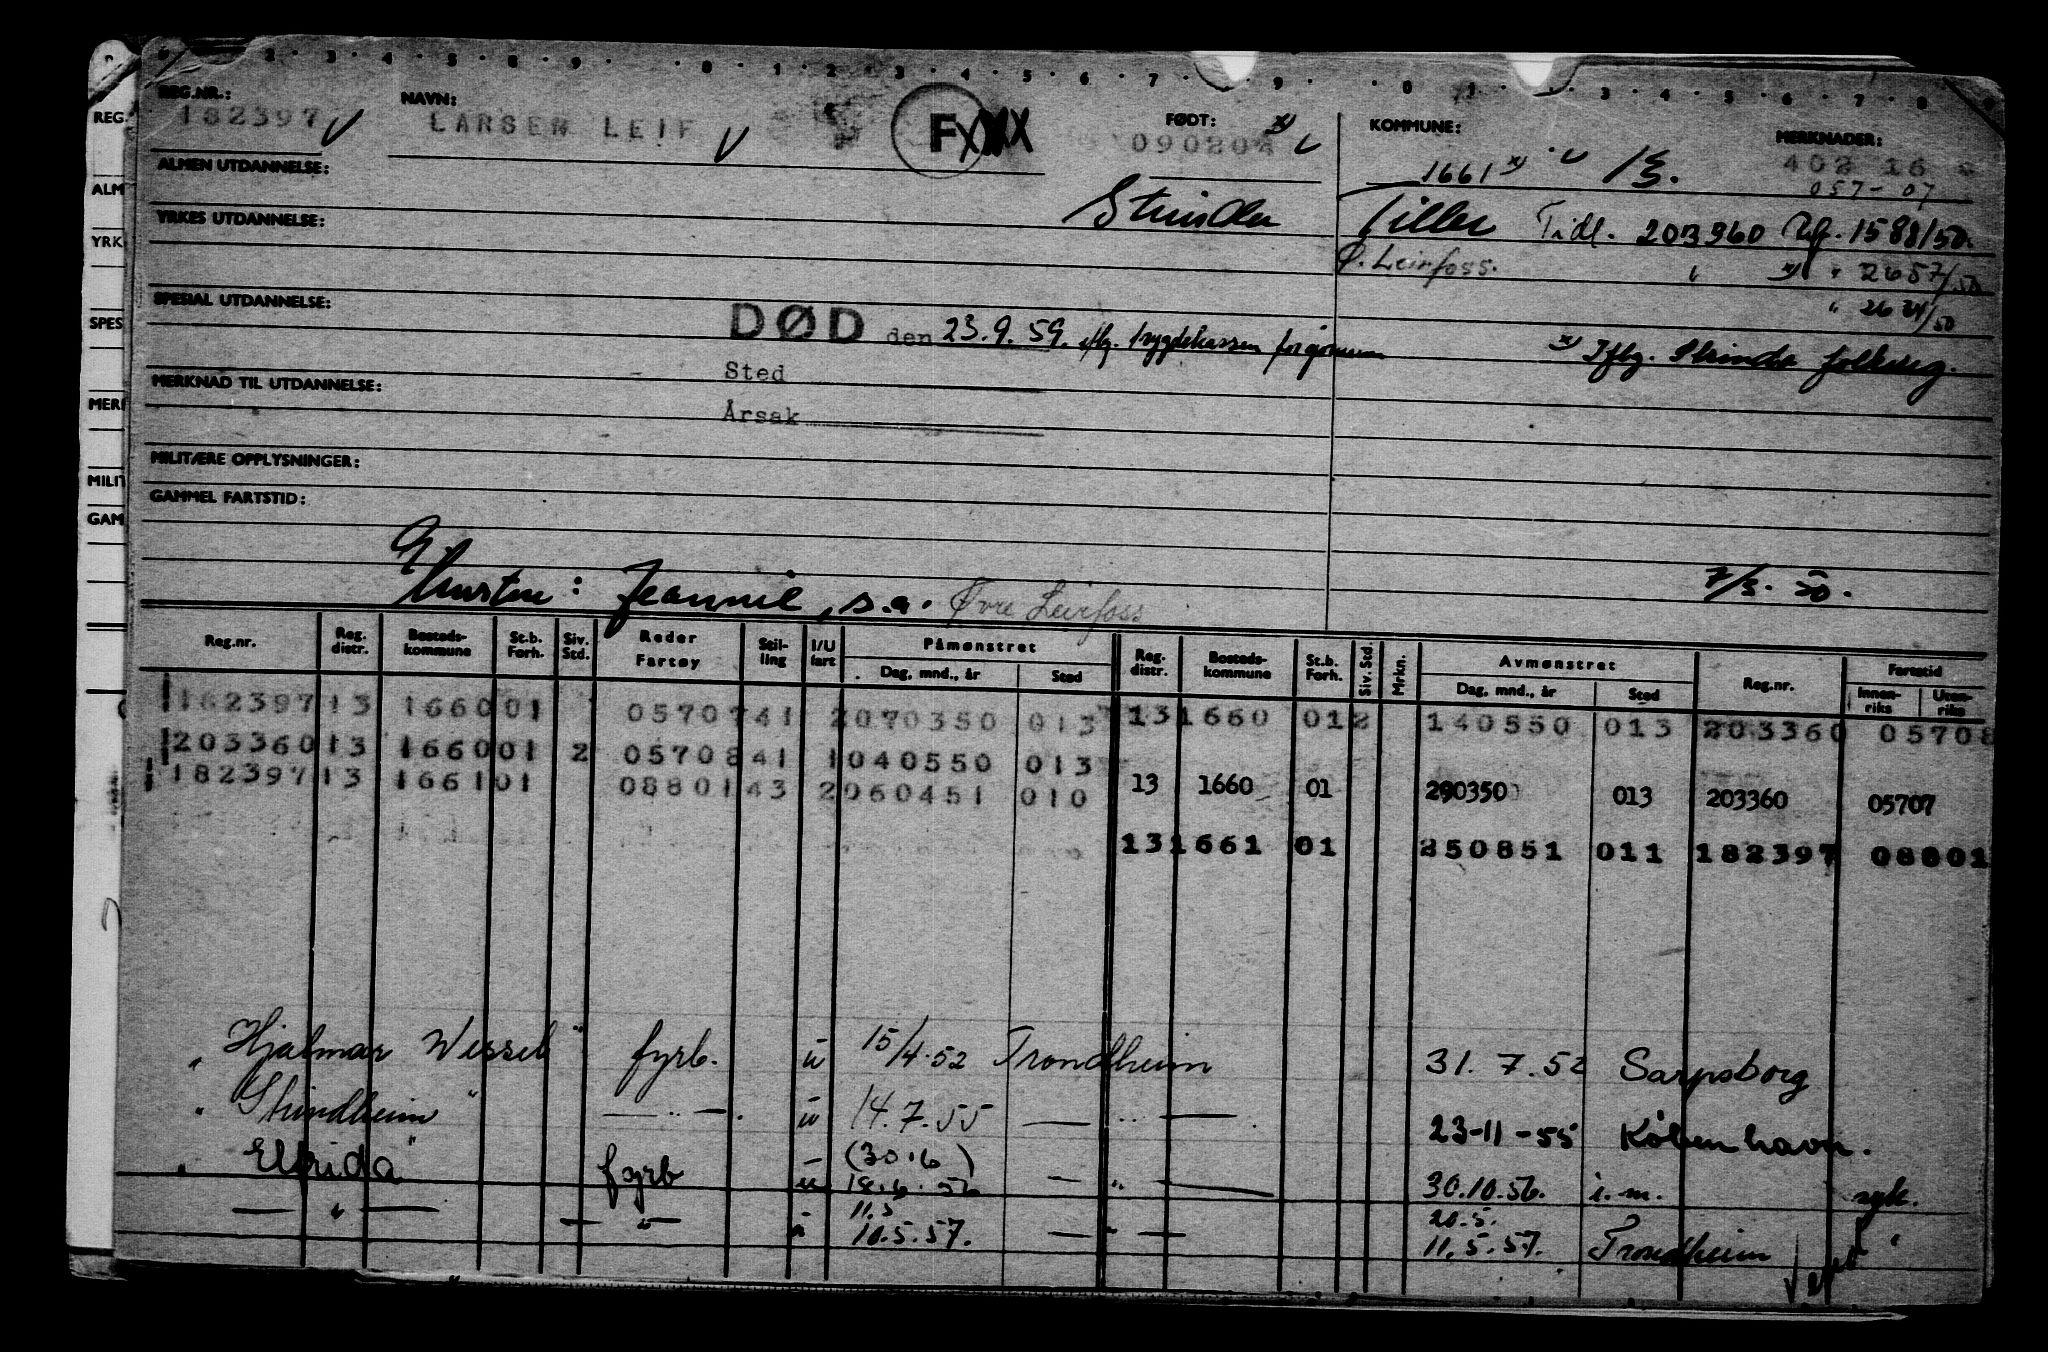 REG.NR.: NAVN: FØDT: KOMMUNE: MERKNADER:
182397 LARSEN LEIF F 090204 1661 402 16
057-07
ALMEN UTDANNELSE:
Strinda Tiller Tidl. 203360 Rf. 1588/50.
YRKES UTDANNELSE:
Ø. Leirfoss. " " 2657/50
SPESIAL UTDANNELSE:
DØD den 23.9.59. iflg. trygdekassen
Iflg. Strinda folkereg.
Sted
MERKNAD TIL UTDANNELSE:
Årsak
MILITÆRE OPPLYSNINGER:
GAMMEL FARTSTID:
G.
Hustru: Jeannie, s.a. Øvre Leirfoss 7/3.50.
Reg.nr. Reg. distr. Bosteds-kommune St.b. Forh. Siv. Std. Reder Fartøy Stil-ling I/U fart Påmønstret Dag, mnd., år Sted Reg. distr. Bosteds-kommune St.b. Forh. Siv. Std. Mrkn. Avmønstret Dag, mnd., år Sted Reg.nr. Fartstid Innen-riks Uten-riks
182397 13 1660 01 05707 41 2 070350 013 13 1660 01 2 140550 013 203360 05708
203360 13 1660 01 2 05708 41 1 040550 013
182397 13 1661 01 08801 43 2 060451 010 13 1660 01 290350 013 203360 05707
13 1661 01 250851 011 182397 08801
"Hjalmar Wessel" fyrb. u 15/4.52 Trondheim 31.7.52 Sarpsborg
"Strindheim" — " — . u 14.7.55 — " — 23-11-55 København.
"Elfrida" fyrb u (30.6) — " — 30.10.56. i.m. syk.
— " — — " — u 11.5 20.5.
10.5.57. — " — 11.5.57. Trondheim "
REG.
ALM
YRK
SPES
MERI
MILIT
GAM